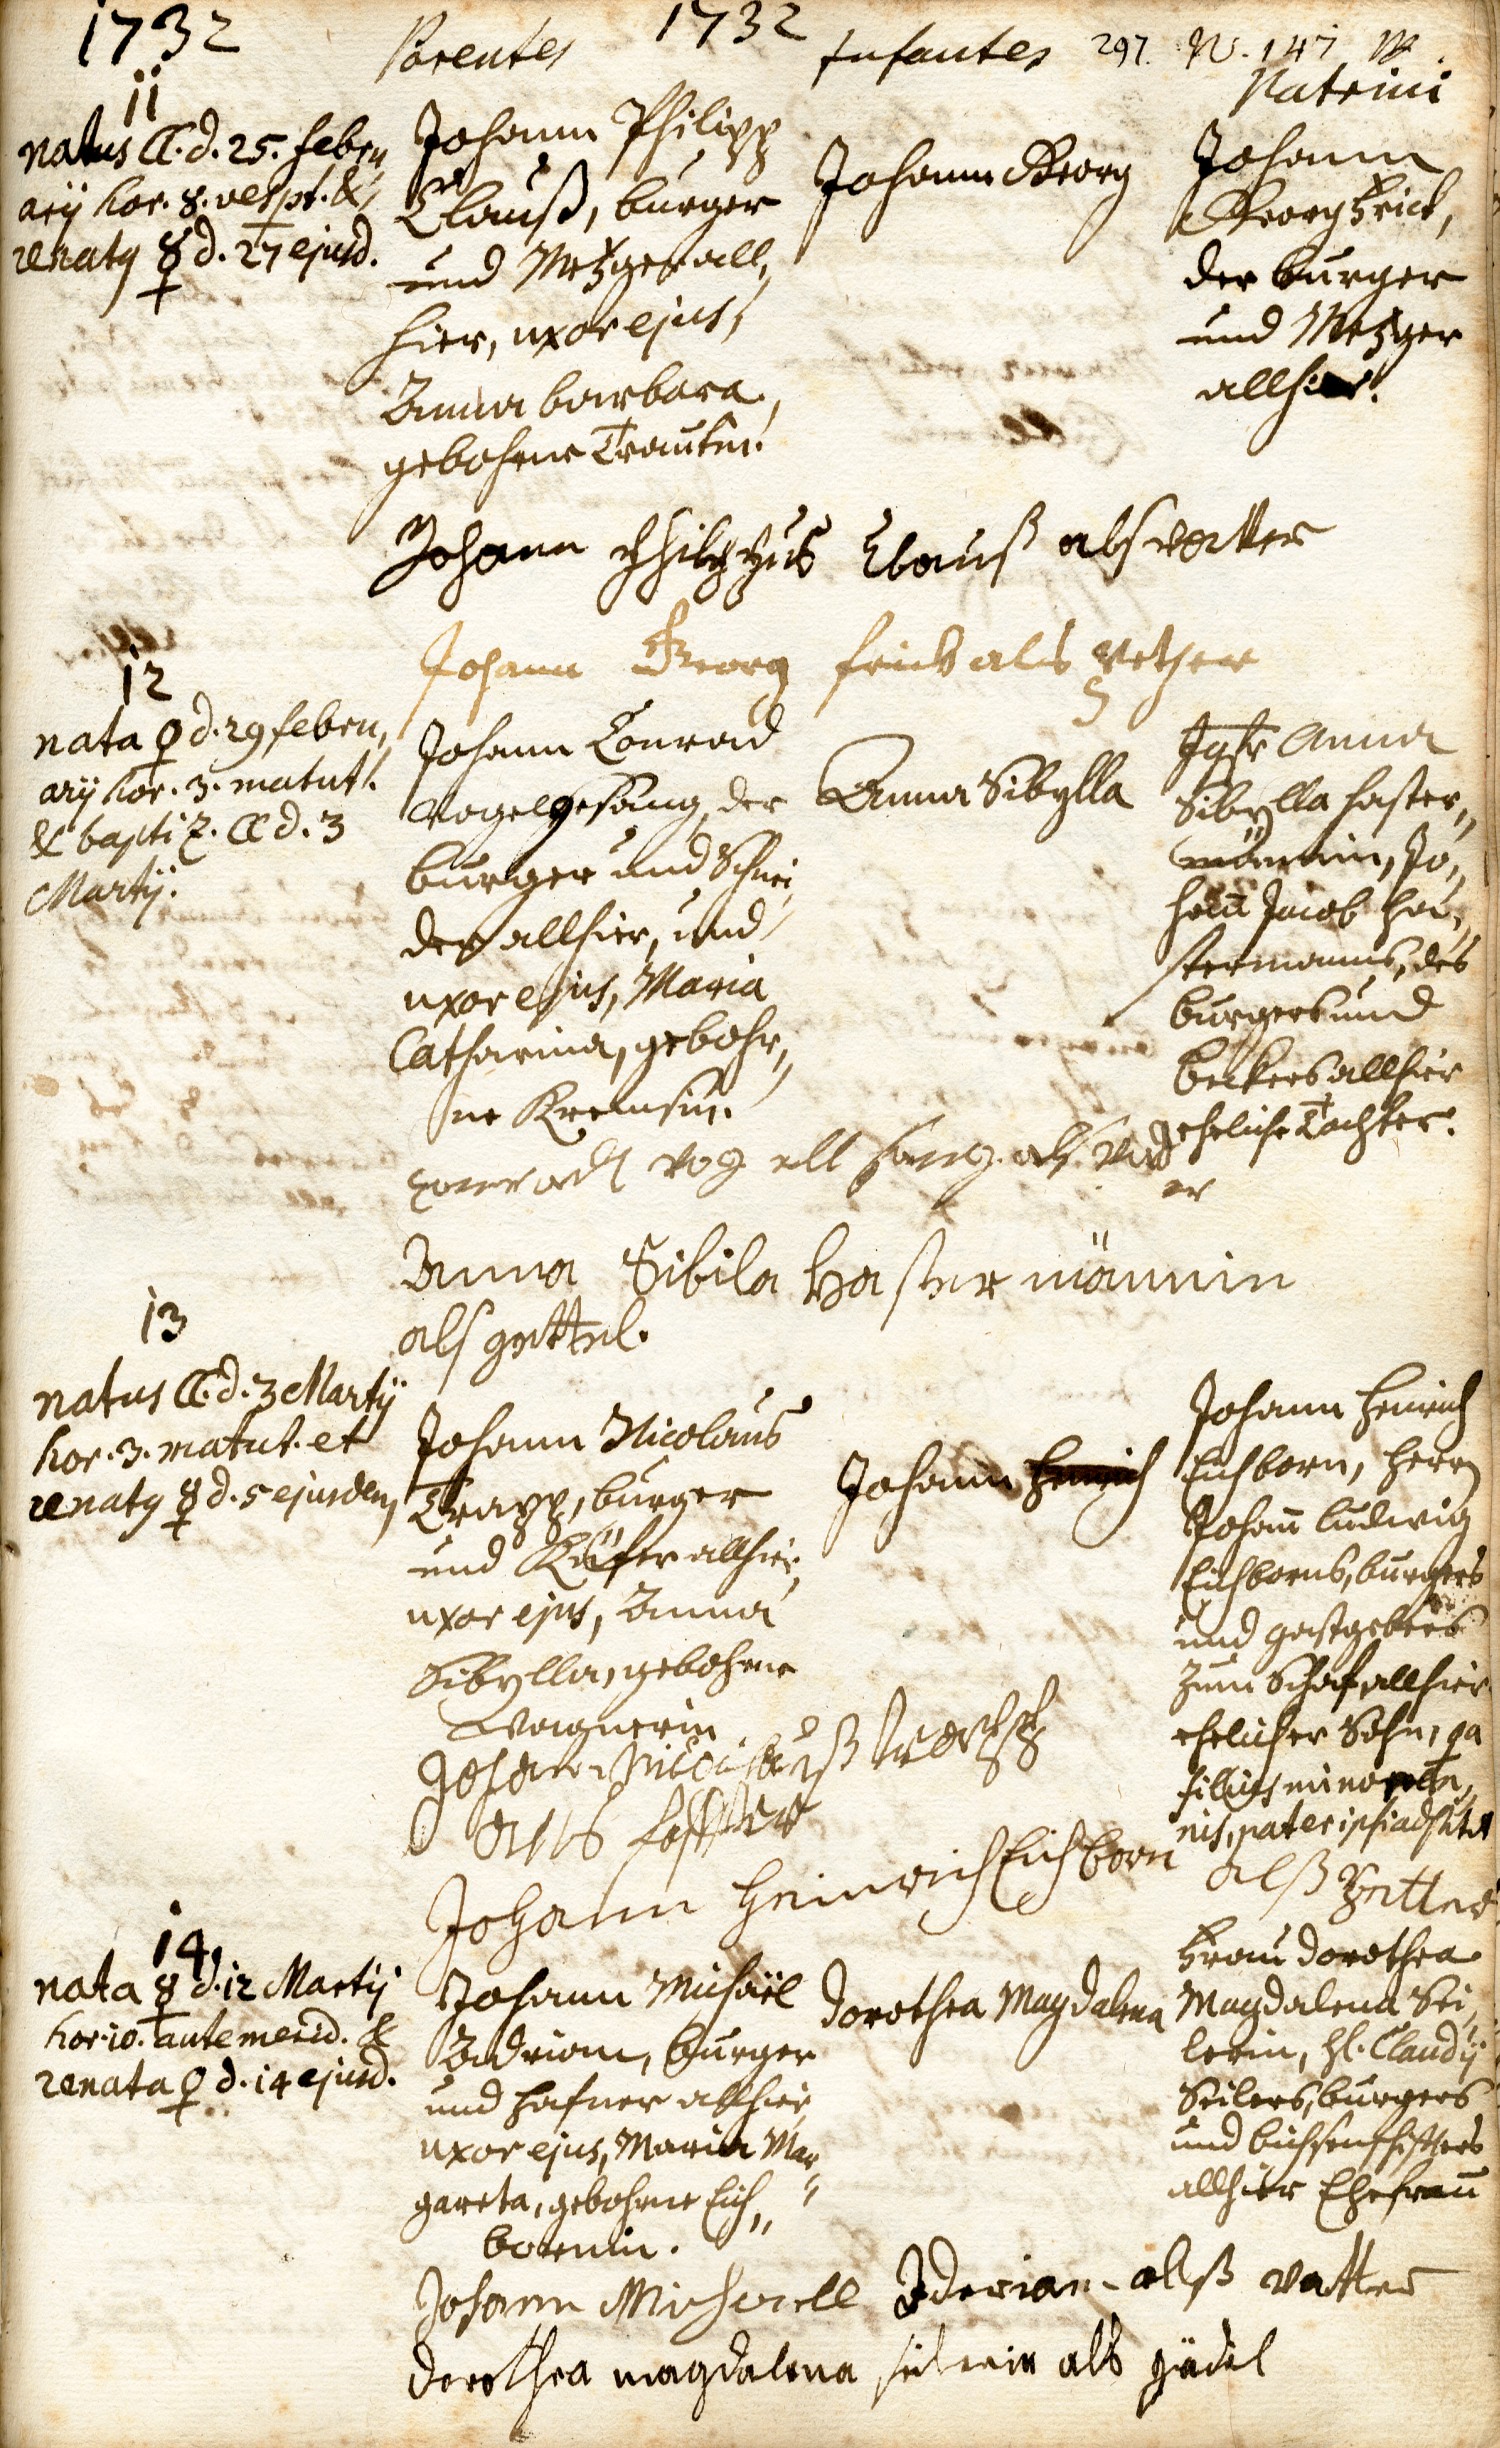 1732
Parentes
1732
Infantes 297. N. 147
Patrini
11
natus d. 25. Febru
arij hor. 8. vespt. &
renaty ☿ d. 27 ejusd.
Johann Philipp
Clauß, burger
und Metzger all,
hier, uxor ejus,
Anna barbara,
gebohrne Trautin.
Johann Georg
Johann
Georg Frick,
der burger
und Metzger
allhier.
Johann Clauß als vatter
Johann Georg frick als
12
nata ♀ d. 29 febru,
arij hor. 3. matut.
& baptiz. d. 3
Martij.
Johann Conrad
Vogelgesang, der
burger und Schnei,
der allhier, und
uxor ejus, Maria
Catharina, gebohr,,
ne
Anna Sibylla
Jgfr Anna
Sibylla Haster,,
männin, Jo,,
hañ Jacob Ha,,
stermanns, des
burgers und
beckers allhier
eheliche Tochter.
vog ell sang als vad
er
Anna Sibila Hastermännin
als gettel.
13
natus d. 3 Martij
hor. 3. matut. et
renaty ☿ d. 5 ejusdem
Johann Nicolaus
Trapp, burger
und Küfer allhier,
uxor ejus, Anna
Sibylla, gebohrne
Wagnerin
Johann Heinrich
Johann Heinrich
Eichborn, Herrn
Johañ Ludwig
Eichborns, burgers
und gastgebers
zum Schaf allhier
ehelicher Sohn, qa
filius minoren,
nis, pater ipsi adstitit
als
Johann Heinrich Eichborn alß Petter
14
nata ☿ d. 12 Martij
hor. 10. antemerid. &
renata ♀ d. 14 ejusd.
Johann Michaël
Adrian, burger
und Hafner allhier,
uxor ejus, Maria Mar,,
gareta, gebohrne Eich,,
bornin.
Dorothea Magdalena
Frau Dorothea
Magdalena Sei,,
lerin, H. Claudij
Seilers, burgers
und büchsenschifters
allhier Ehefrau
Johann Michaell Aderian alß vatter
Dorothea magdalena seilerin als gödel